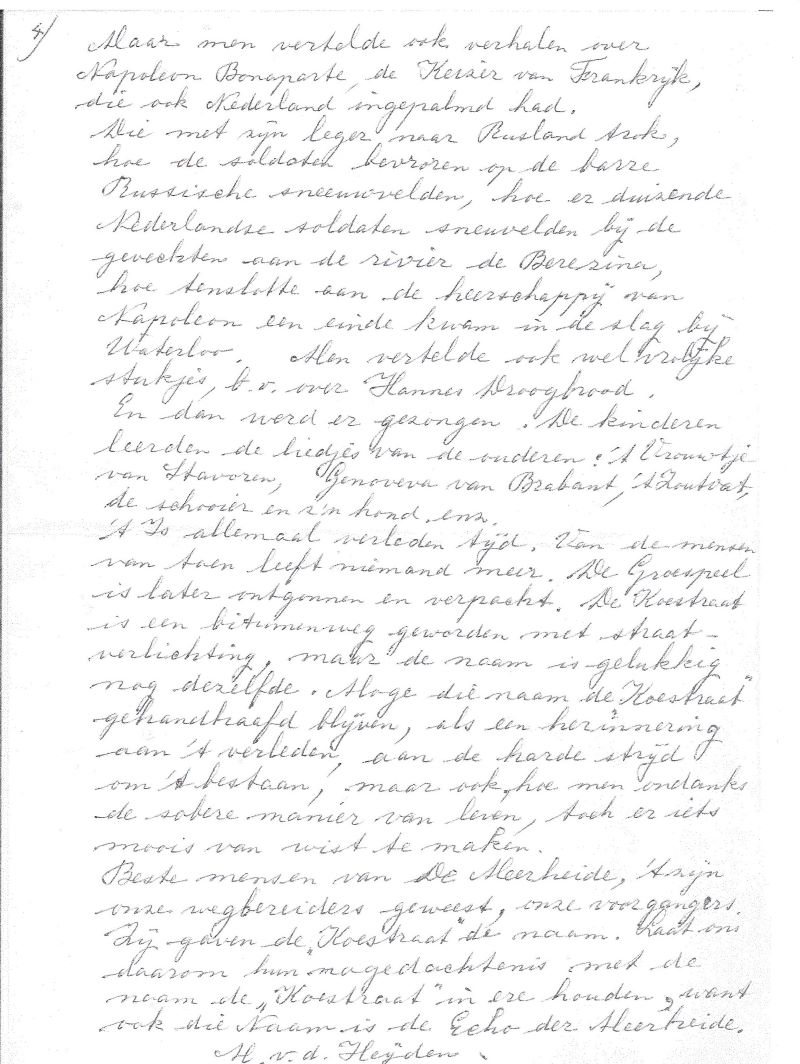 4/
Maar men vertelde ook verhalen over
Napoleon Bonaparte, de Keizer van Frankrijk,
die ook Nederland ingepalmd had.
Die met zijn leger naar Rusland trok,
hoe de soldaten bevroren op de barre
Russische sneeuwvelden, hoe er duizende
Nederlandse soldaten sneuvelden bij de
gevechten aan de rivier de Berezina,
hoe tenslotte aan de heerschappij van
Napoleon een einde kwam in de slag bij
Waterloo. Men vertelde ook wel vrolijke
stukjes, b.v. over Hannes Droogbrood.
En dan werd er gezongen. De kinderen
leerden de liedjes van de ouderen: 't Vrouwtje
van Stavoren, Genoveva van Brabant, 't Zoutvat,
de schooier en z'n hond, enz.
't Is allemaal verleden tijd. Van de mensen
van toen leeft niemand meer. De Groespeel
is later ontgonnen en verpacht. De Koestraat
is een bitumenweg geworden met straat-
verlichting, maar de naam is gelukkig
nog dezelfde. Moge die naam de "Koestraat"
gehandhaafd blijven, als een herinnering
aan 't verleden, aan de harde strijd
om 't bestaan, maar ook, hoe men ondanks
de sobere manier van leven, toch er iets
moois van wist te maken.
Beste mensen van De Meerheide, 't zijn
onze wegbereiders geweest, onze voorgangers.
Zij gaven de "Koestraat" de naam. Laat ons
daarom hun nagedachtenis met de
naam de „Koestraat" in ere houden, want
ook die Naam is de Echo der Meerheide.
M. v. d. Heijden.